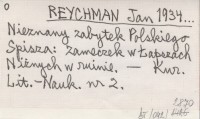 REYCHMAN Jan 1934...
Nieznany zabytek Polskiego
Spisza: zameczek w Łapszach
Niżnych w ruinie. — Kur.
Lit.-Nauk. nr 2.